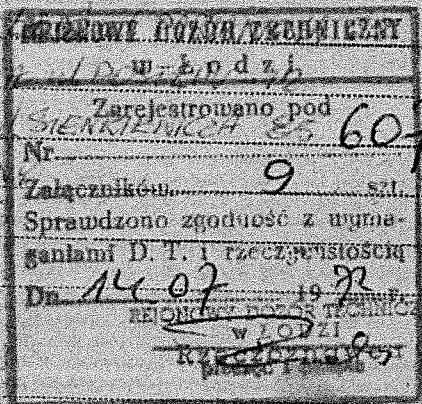 REJONOWY DOZÓR TECHNICZNY
w Łodzi
Zarejestrowano pod
SIENKIEWICZA 85
Nr. 60
Załączników 9 szt.
Sprawdzono zgodność z wyma-
ganiami D. T. i rzeczywistością
Dn. 14 07 1972 r.
REJONOWY DOZÓR TECHNICZ
w ŁODZI